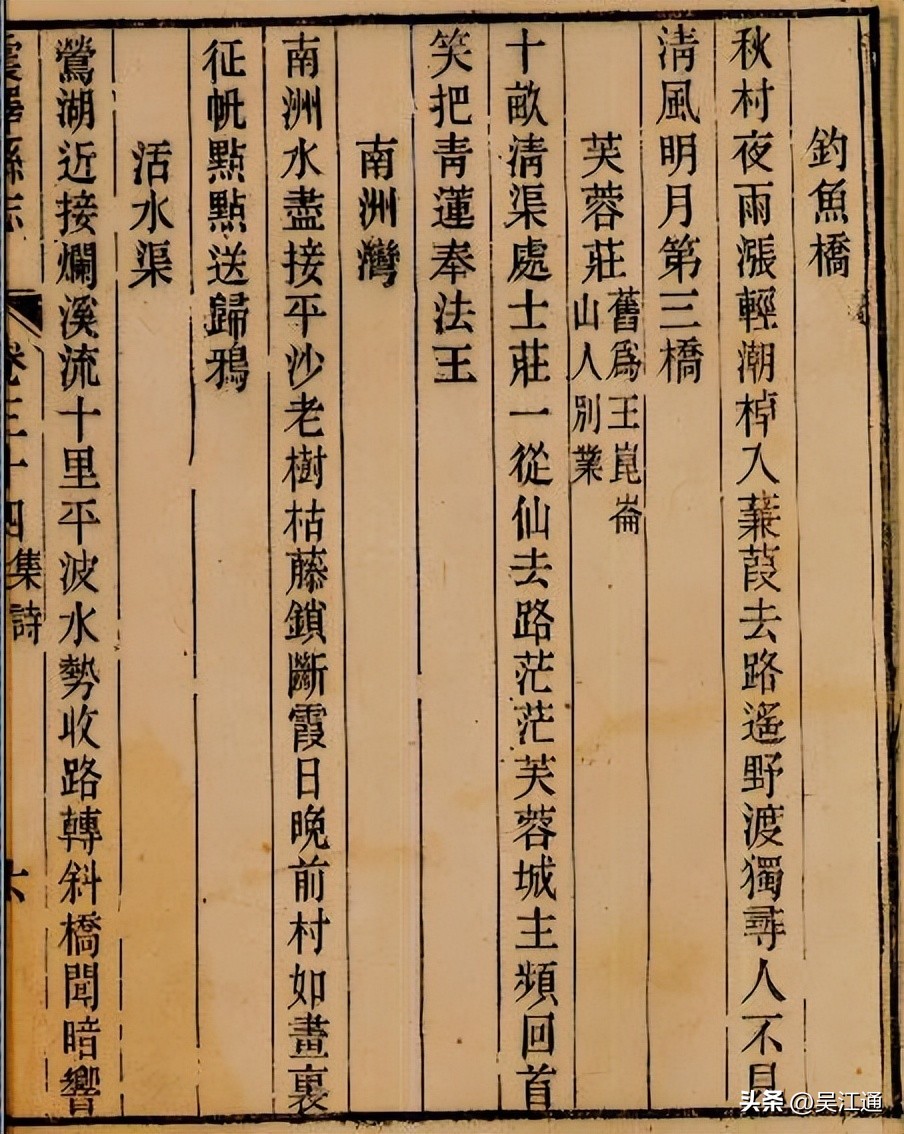 釣魚橋
秋村夜雨漲輕潮棹入蒹葭去路遙野渡獨尋人不見
淸風明月第三橋
芙蓉莊舊爲王崑崙
山人別業
十畝淸渠處士莊一從仙去路茫茫芙蓉城主頻回首
笑把靑蓮奉法王
南洲灣
南洲水盡接平沙老樹枯藤鎖斷霞日晚前村如畫裏
征帆點點送歸鴉
活水渠
鶯湖近接爛溪流十里平波水勢收路轉斜橋聞暗響
震澤縣志
卷三十四
集詩
六
头条 @吴江通